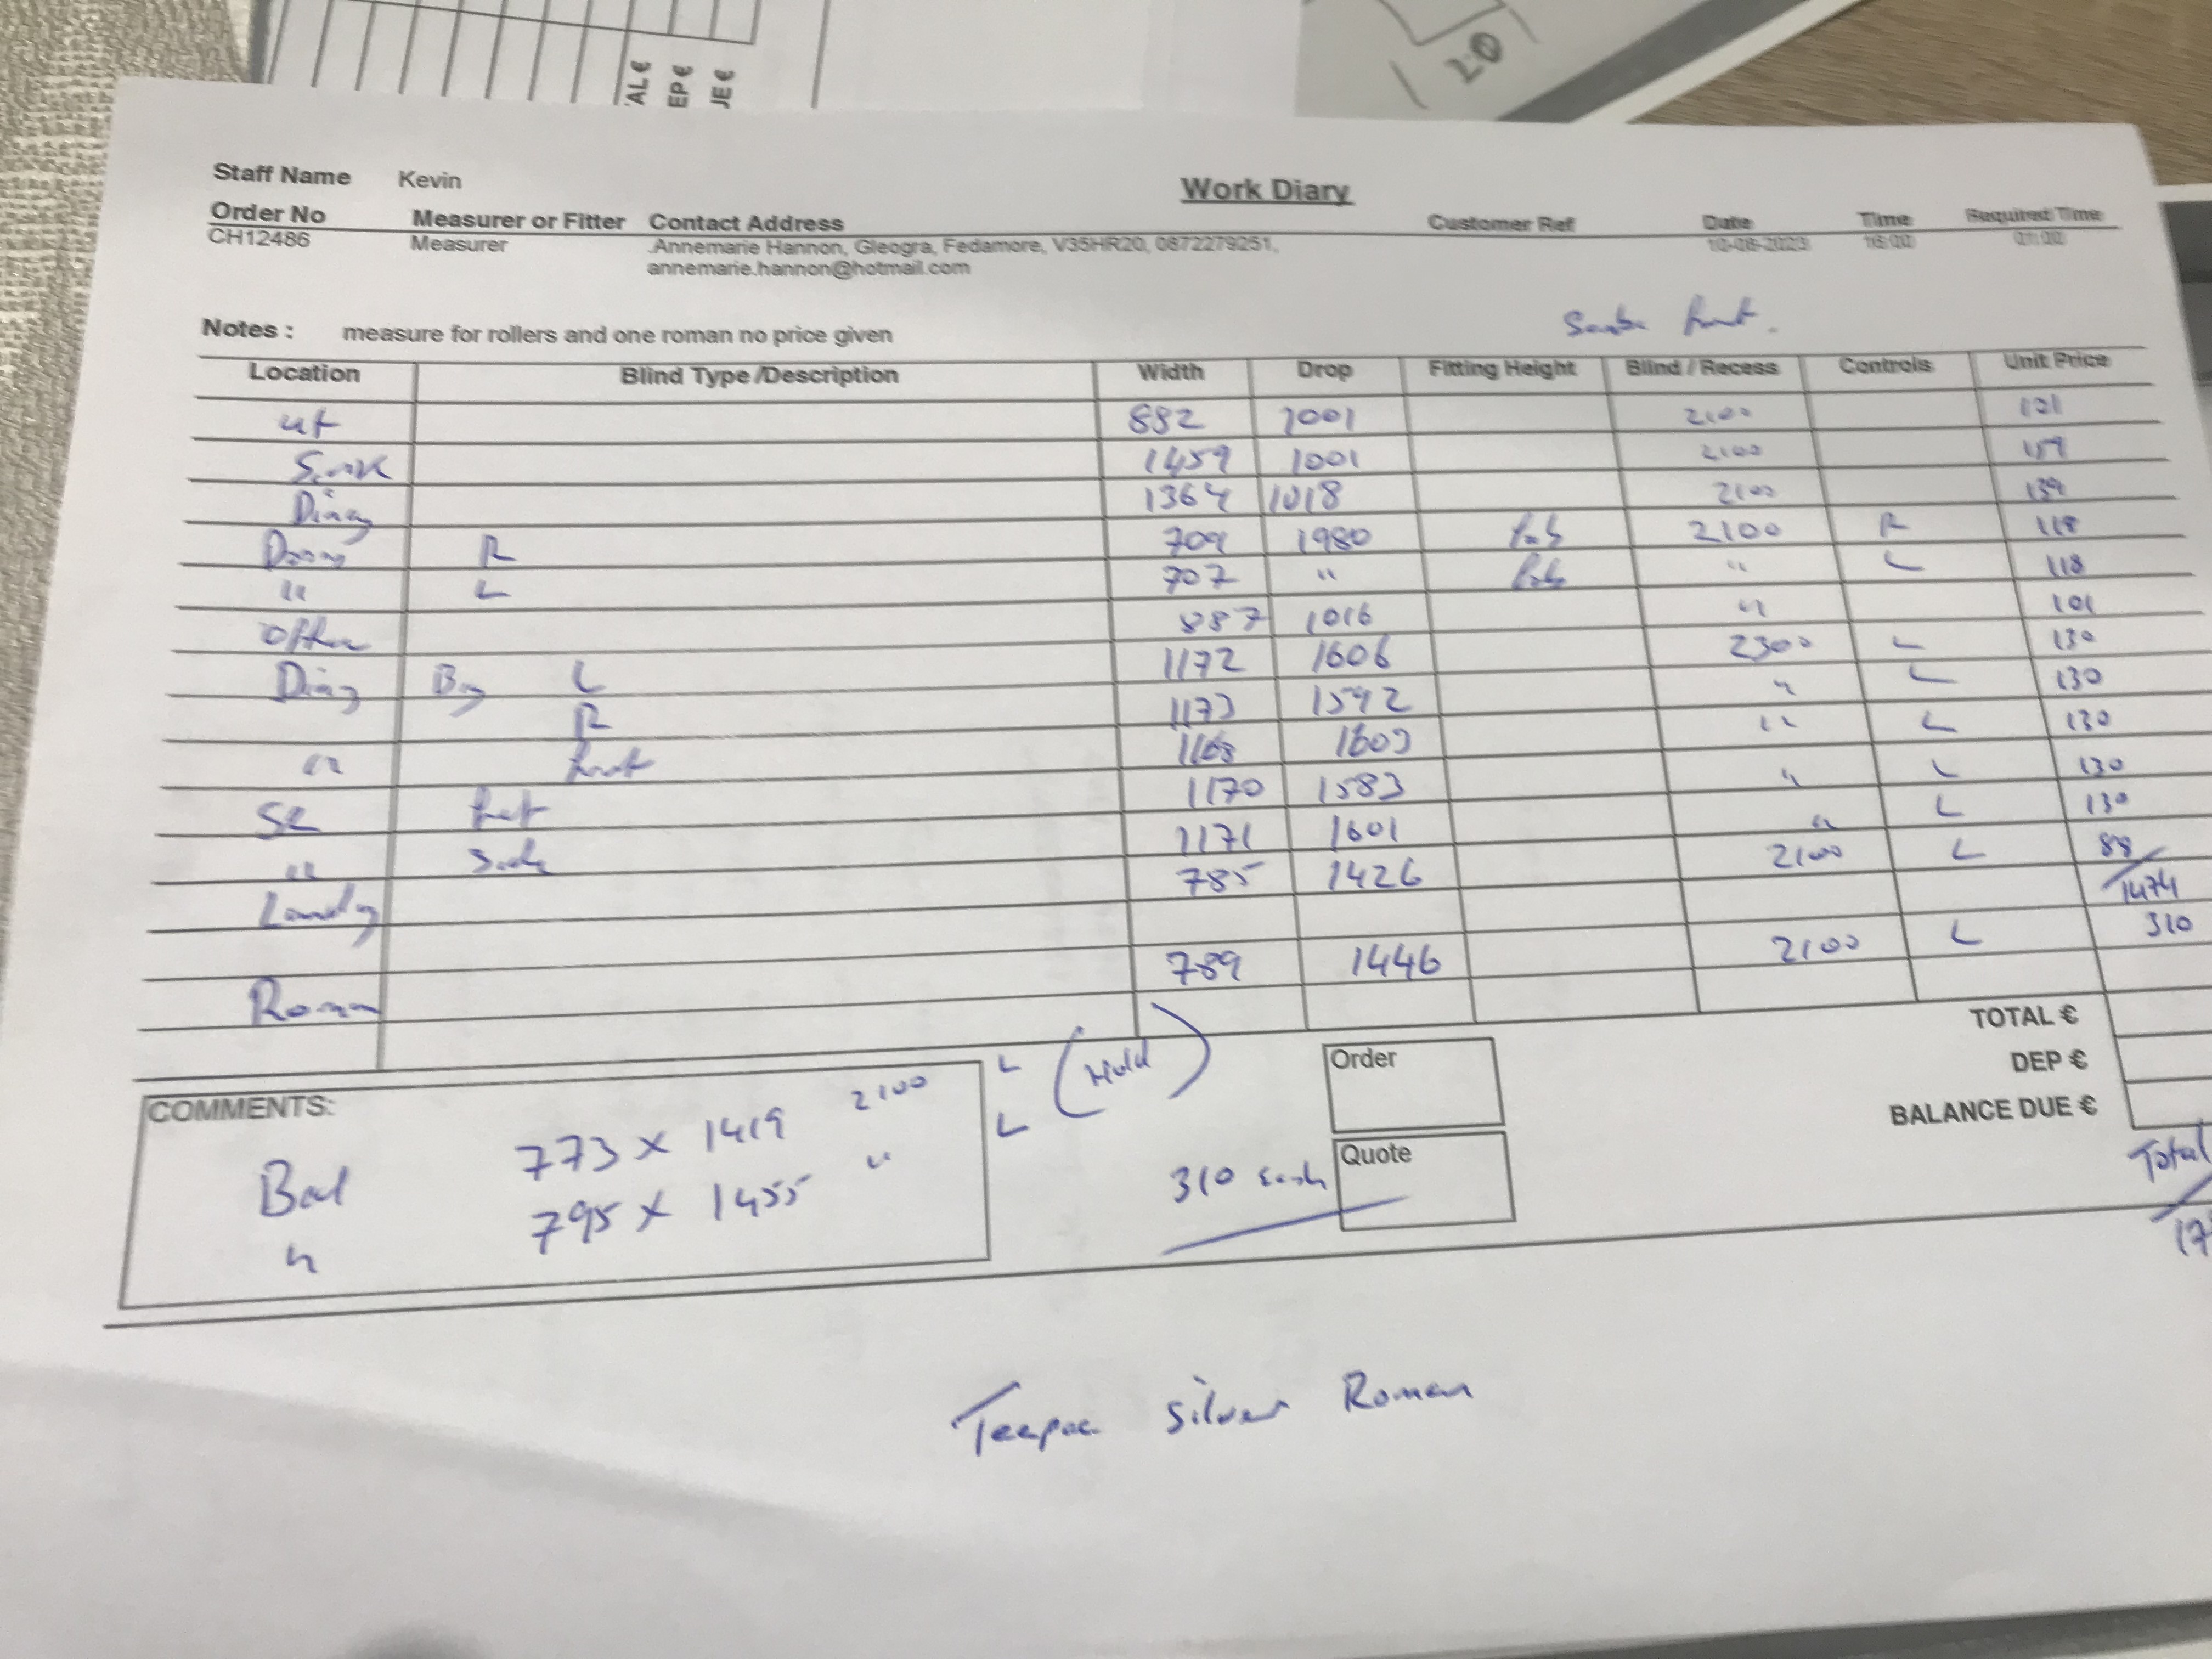 AL €
EP €
UE €
20
Staff Name Kevin
Work Diary
Order No Measurer or Fitter Contact Address Customer Ref Date Time Required Time
CH12486 Measurer .Annemarie Hannon, Gleogra, Fedamore, V35HR20, 0872279251, 10-08-2023 16:00 01:00
annemarie.hannon@hotmail.com
Notes : measure for rollers and one roman no price given
Location Blind Type /Description Width Drop Fitting Height Blind / Recess Controls Unit Price
ut 882 1001 2100 101
1459 1001 2100 159
Dining 1364 1018 2100 139
R 709 1980 2100 R 118
" L 707 " " L 118
Office 887 1016 " 101
Dining Bay L 1172 1606 2300 L 130
R 1173 1592 " L 130
" front 1168 1603 " L 130
SR 1170 1583 " L 130
" Side 1171 1601 " L 130
Landing 785 1426 2100 L 88
1474
Roman 789 1446 2100 L 310
TOTAL €
DEP €
BALANCE DUE €
COMMENTS:
Bed 773 x 1419 2100 L (Hold)
" 795 x 1455 " L
310 each
Order
Quote
Total
17
silver Roman